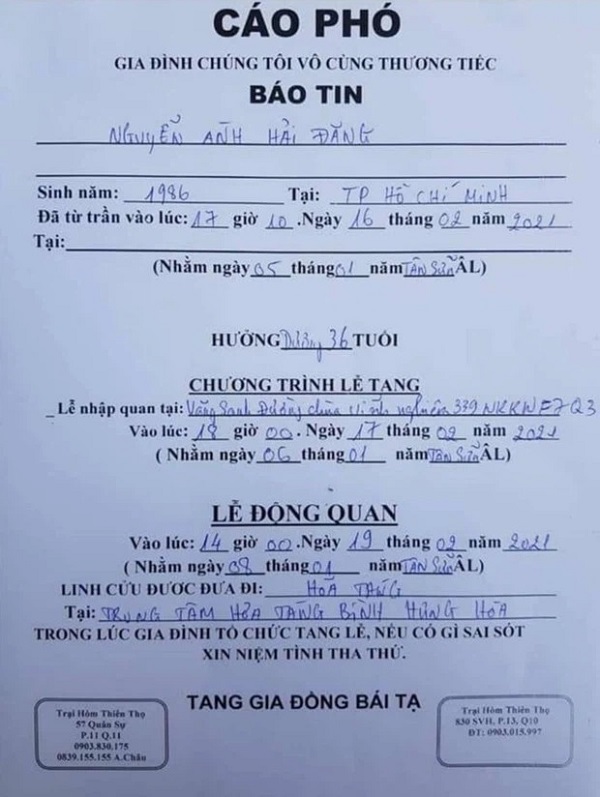 CÁO PHÓ
GIA ĐÌNH CHÚNG TÔI VÔ CÙNG THƯƠNG TIẾC
BÁO TIN
NGUYỄN ANH HẢI ĐĂNG
Sinh năm: 1986 Tại: TP HỒ CHÍ MINH
Đã từ trần vào lúc: 17 giờ 10 .Ngày 16 tháng 02 năm 2021
Tại:
(Nhằm ngày 05 tháng 01 năm TÂN SỬU ÂL)
HƯỞNG Dương 36 TUỔI
CHƯƠNG TRÌNH LỄ TANG
_ Lễ nhập quan tại: Vãng Sanh Đường chùa Vĩnh nghiêm 339 NKKN F7 Q3
Vào lúc: 18 giờ 00. Ngày 17 tháng 02 năm 2021
( Nhằm ngày 06 tháng 01 năm TÂN SỬU ÂL)
LỄ ĐỘNG QUAN
Vào lúc: 14 giờ 00 .Ngày 19 tháng 02 năm 2021
( Nhằm ngày 08 tháng 01 năm TÂN SỬU ÂL)
LINH CỬU ĐƯỢC ĐƯA ĐI: HỎA TÁNG
Tại: TRUNG TÂM HỎA TÁNG BÌNH HƯNG HÒA
TRONG LÚC GIA ĐÌNH TỔ CHỨC TANG LỄ, NẾU CÓ GÌ SAI SÓT
XIN NIỆM TÌNH THA THỨ.
TANG GIA ĐỒNG BÁI TẠ
Trại Hòm Thiên Thọ
57 Quân Sự
P.11 Q.11
0903.830.175
0839.155.155 A.Châu
Trại Hòm Thiên Thọ
830 SVH, P.13, Q10
ĐT: 0903.015.997